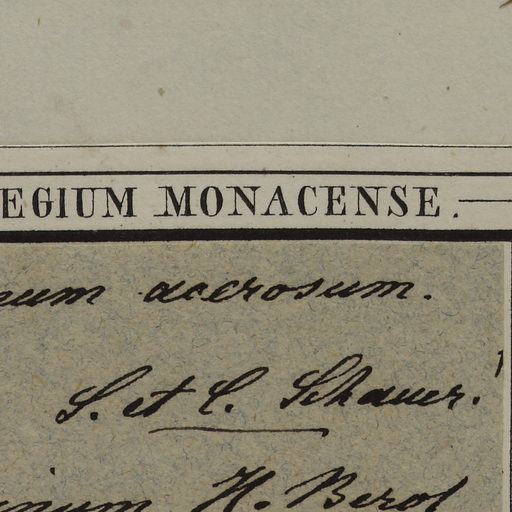 EGIUM MONACENSE.
num acerosum.
S. et C. Schauer.
inum H. Berol